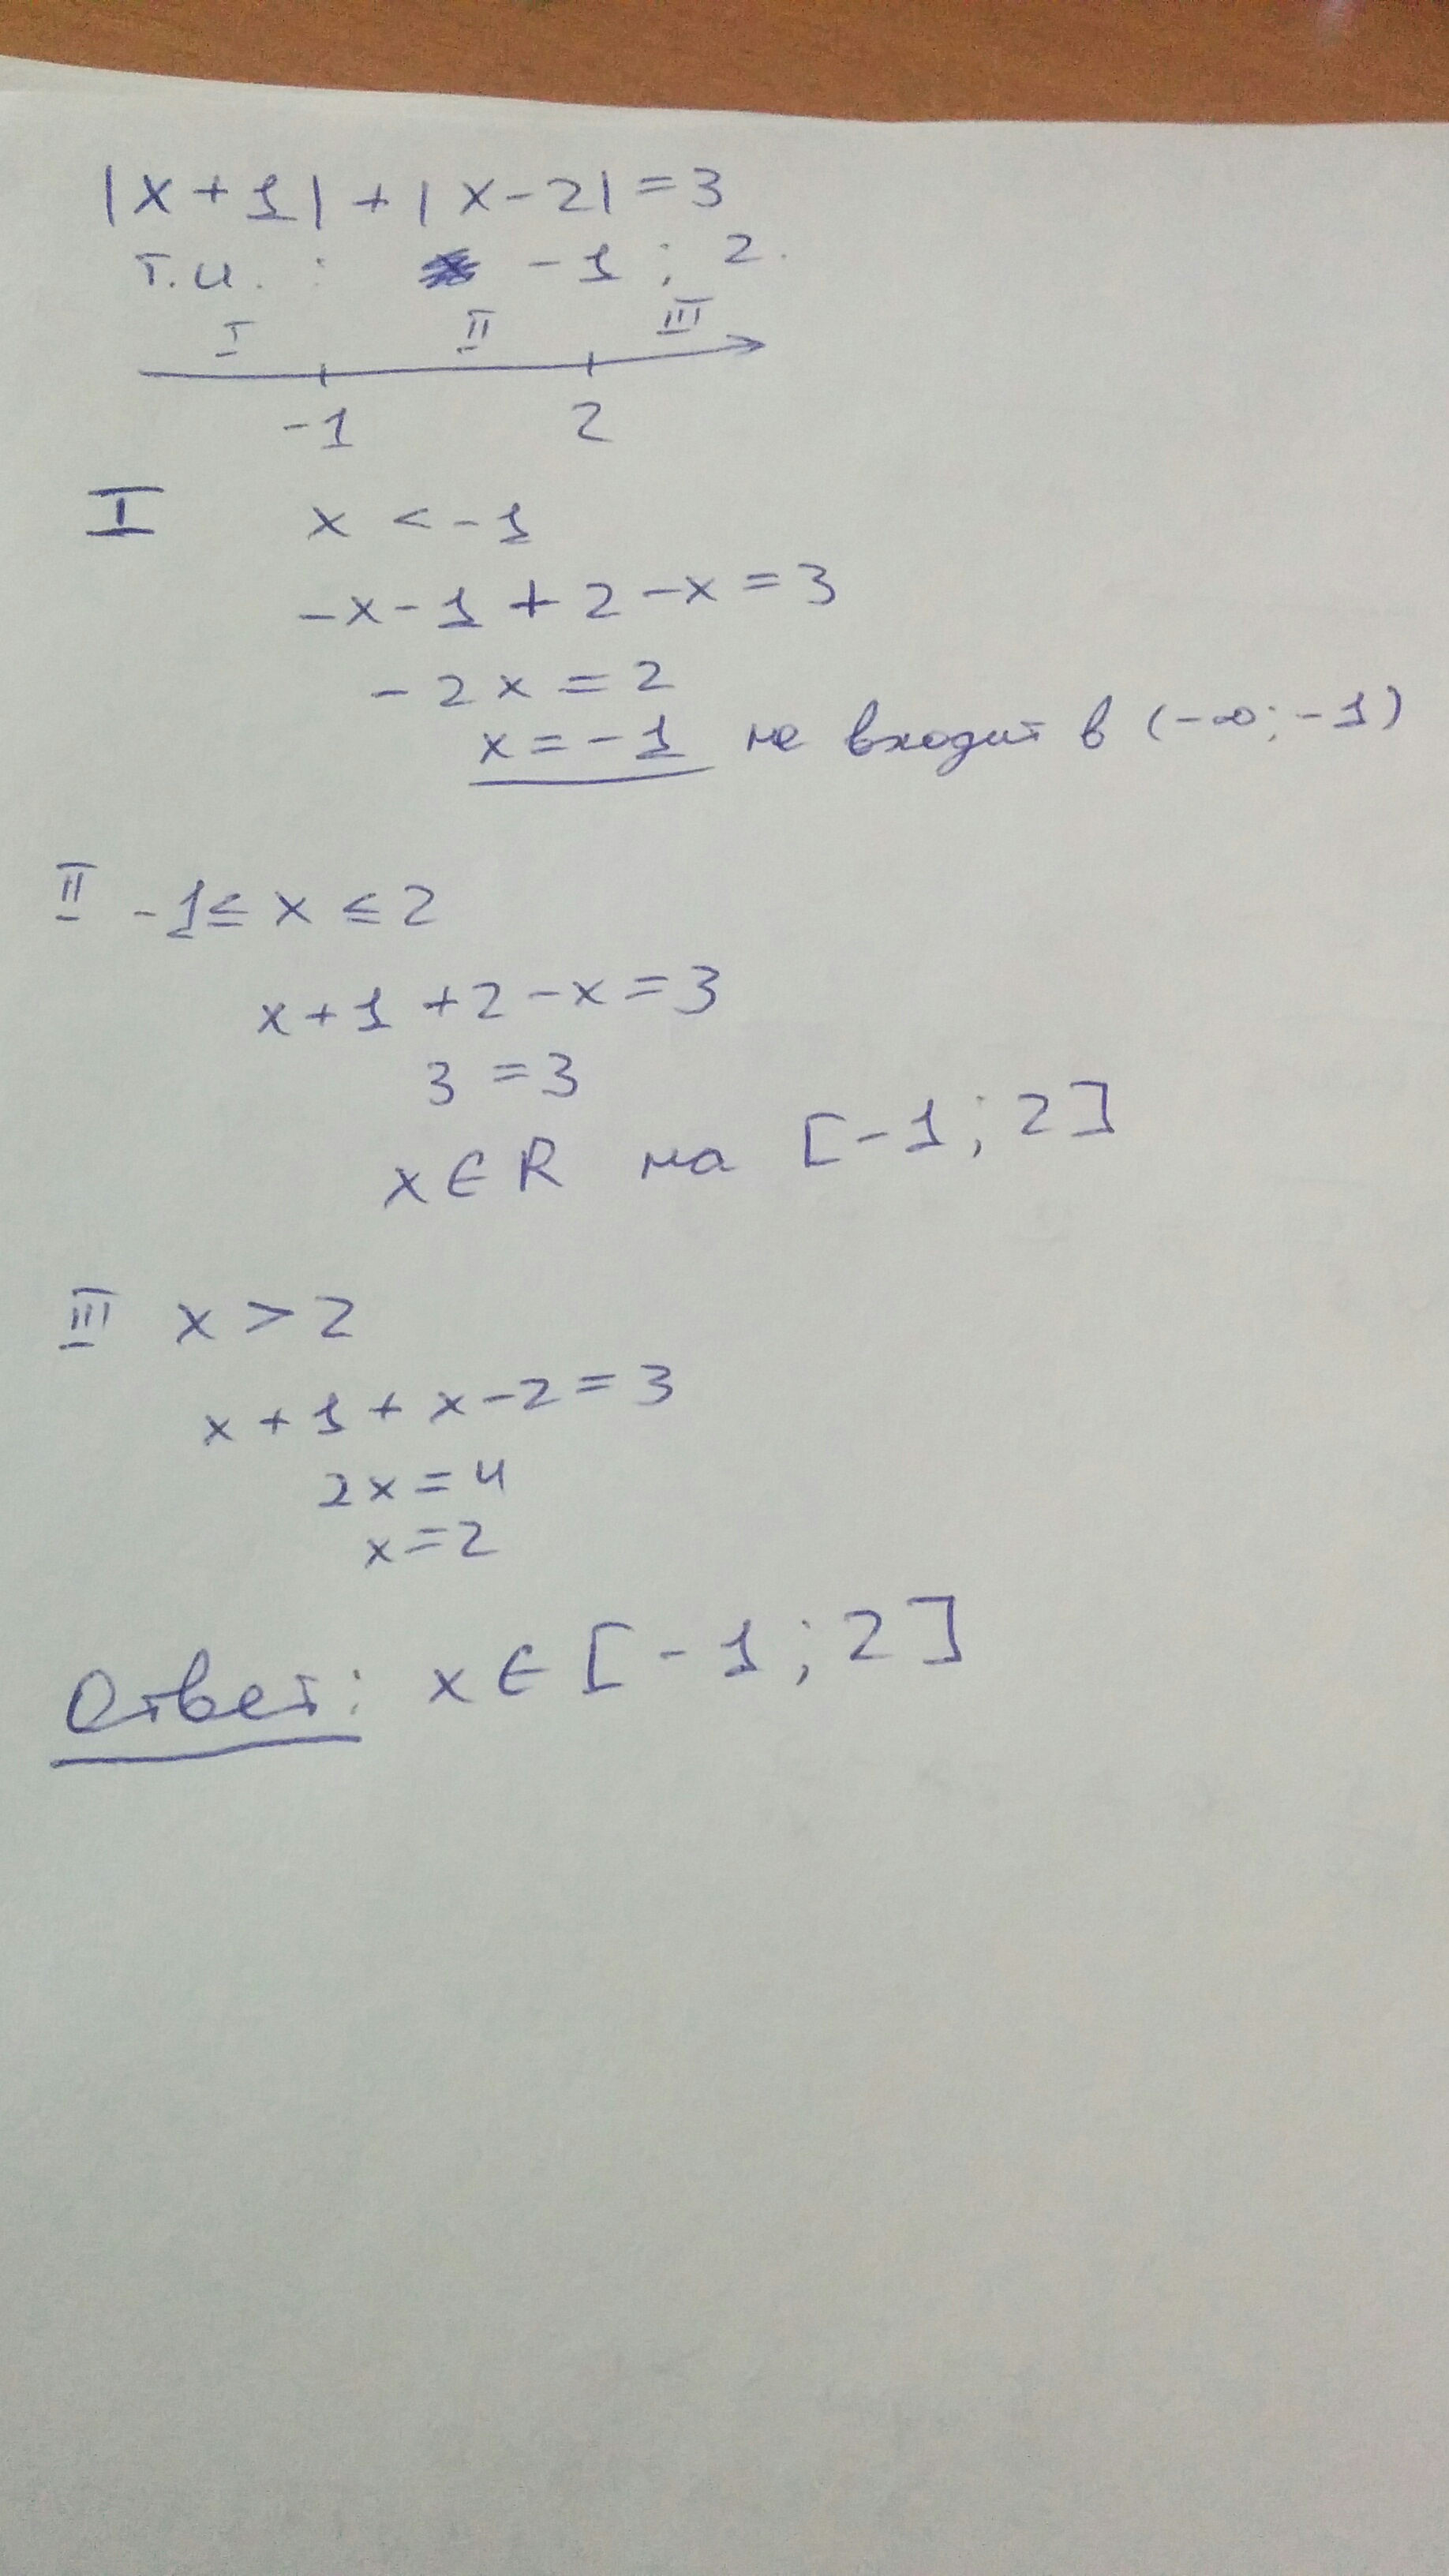 |x+1|+|x-2|=3
т.и. : -1 ; 2.
I II III
-1 2
I x < -1
-x-1+2-x=3
-2x=2
x=-1 не входит в (-∞; -1)
II -1≤ x ≤2
x+1+2-x=3
3=3
x∈R на [-1; 2]
III x>2
x+1+x-2=3
2x=4
x=2
Ответ: x∈[-1; 2]